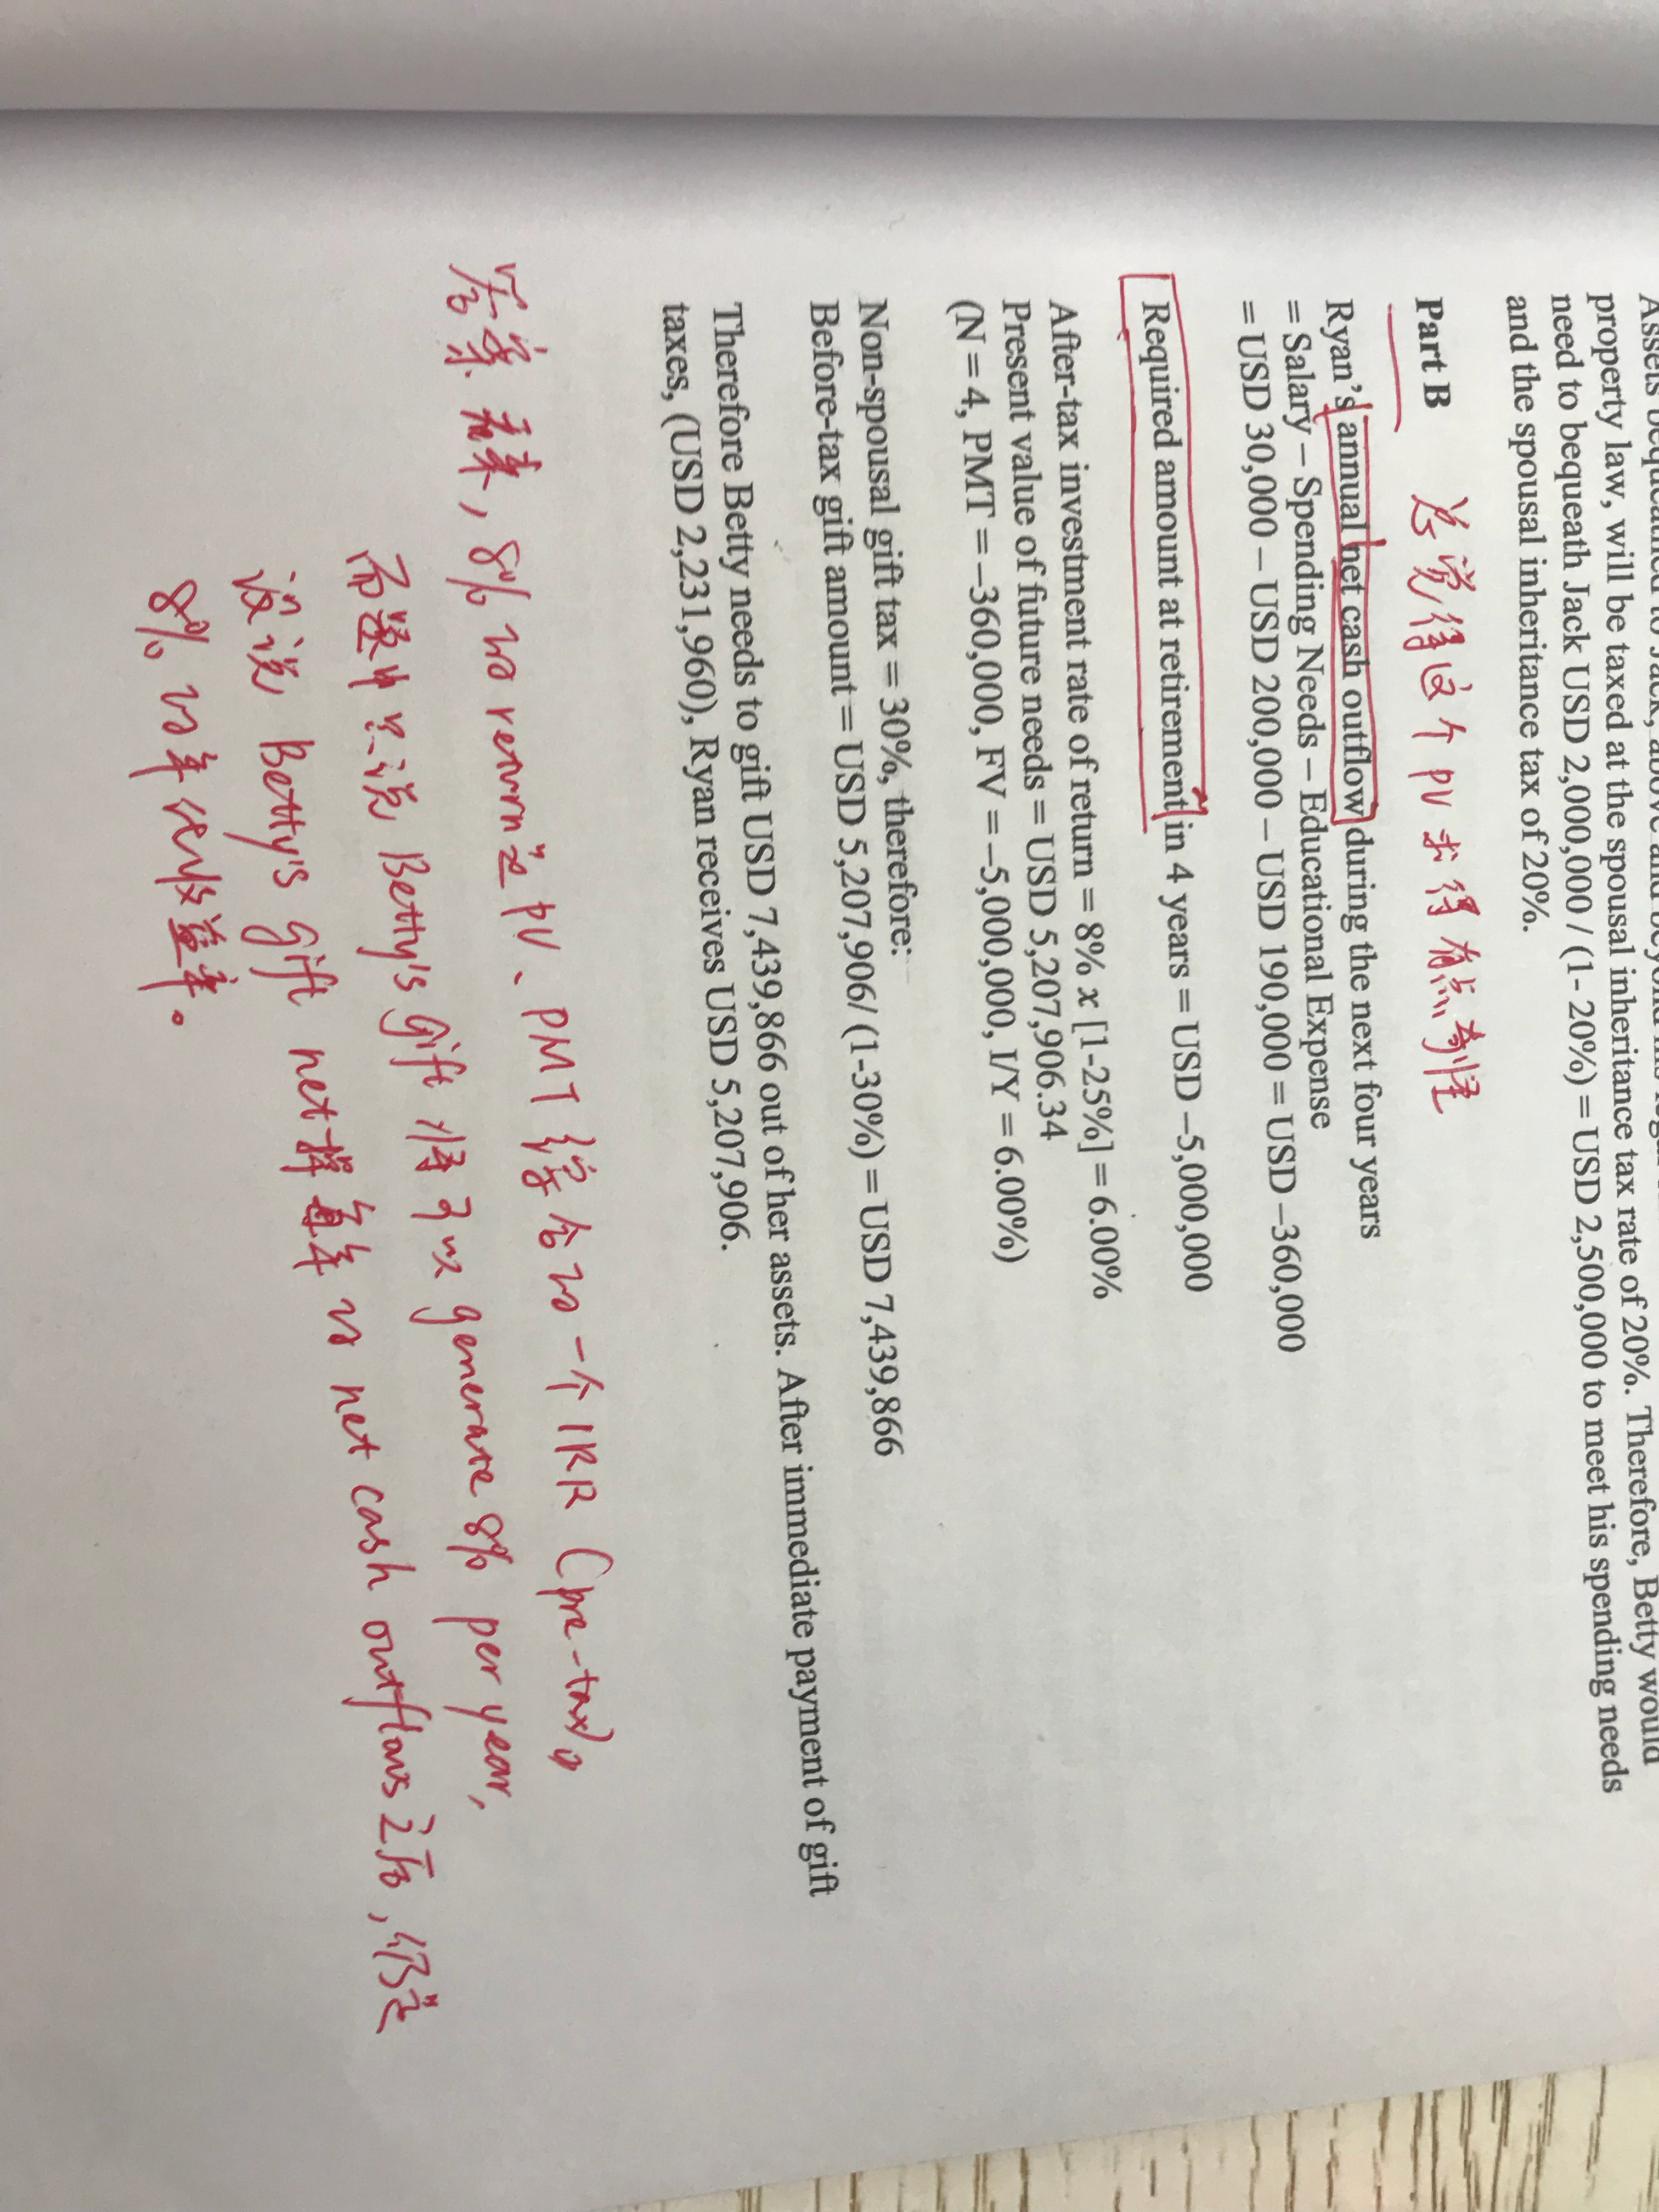 Assets bequeathed to Jack, above and beyond his legal
property law, will be taxed at the spousal inheritance tax rate of 20%. Therefore, Betty would
need to bequeath Jack USD 2,000,000 / (1- 20%) = USD 2,500,000 to meet his spending needs
and the spousal inheritance tax of 20%.
Part B 总觉得这个 PV 求得有点奇怪
Ryan's annual net cash outflow during the next four years
= Salary – Spending Needs – Educational Expense
= USD 30,000 – USD 200,000 – USD 190,000 = USD –360,000
Required amount at retirement in 4 years = USD –5,000,000
After-tax investment rate of return = 8% x [1-25%] = 6.00%
Present value of future needs = USD 5,207,906.34
(N = 4, PMT = –360,000, FV = –5,000,000, I/Y = 6.00%)
Non-spousal gift tax = 30%, therefore:
Before-tax gift amount = USD 5,207,906/ (1-30%) = USD 7,439,866
Therefore Betty needs to gift USD 7,439,866 out of her assets. After immediate payment of gift
taxes, (USD 2,231,960), Ryan receives USD 5,207,906.
答案看来, 8% 的 return 是 PV、PMT 综合的一个 IRR (pre-tax)。
而题中只说 Betty's gift 将可以 generate 8% per year,
没说 Betty's gift net掉每年的 net cash outflows 之后, 仍是
8% 的年收益率。